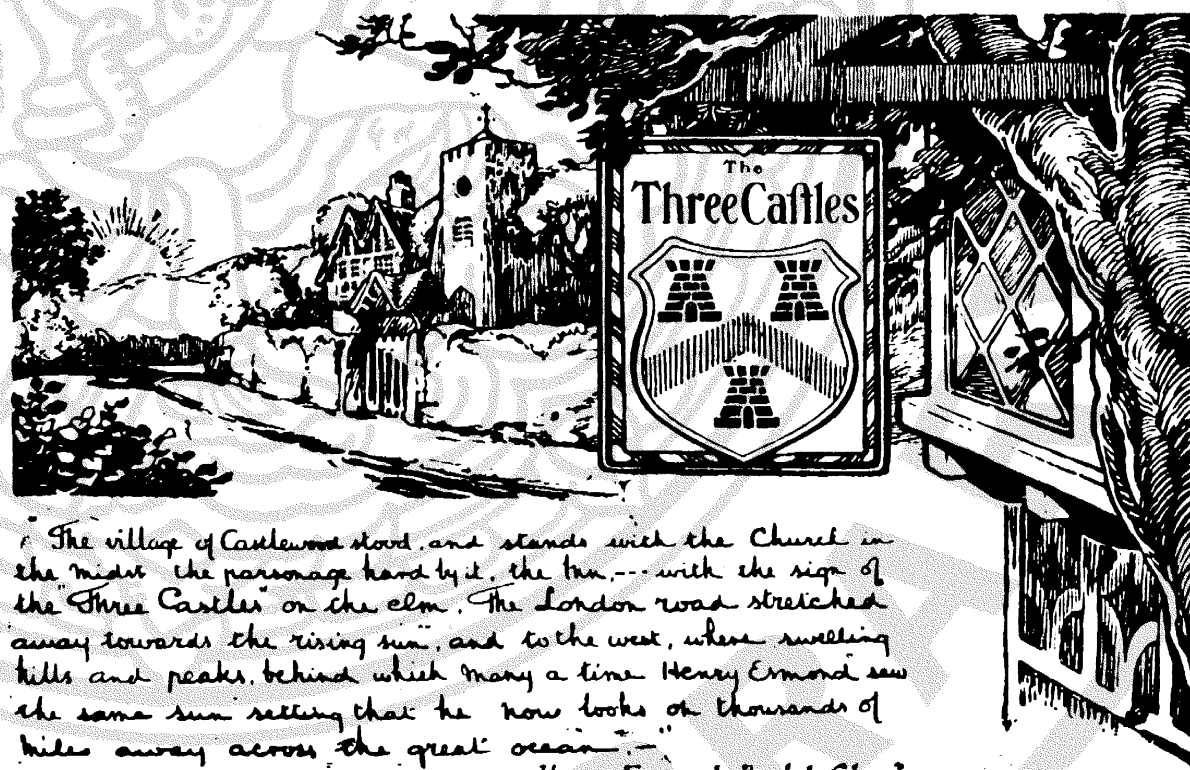 The
Three Caſtles
" The village of Castlewood stood, and stands with the Church in
the midst the parsonage hard by it, the Inn,--- with the sign of
the "Three Castles" on the elm. The London road stretched
away towards the rising sun", and to the west, where swelling
hills and peaks, behind which many a time Henry Esmond saw
the same sun setting that he now looks on thousands of
miles away across the great ocean".—"